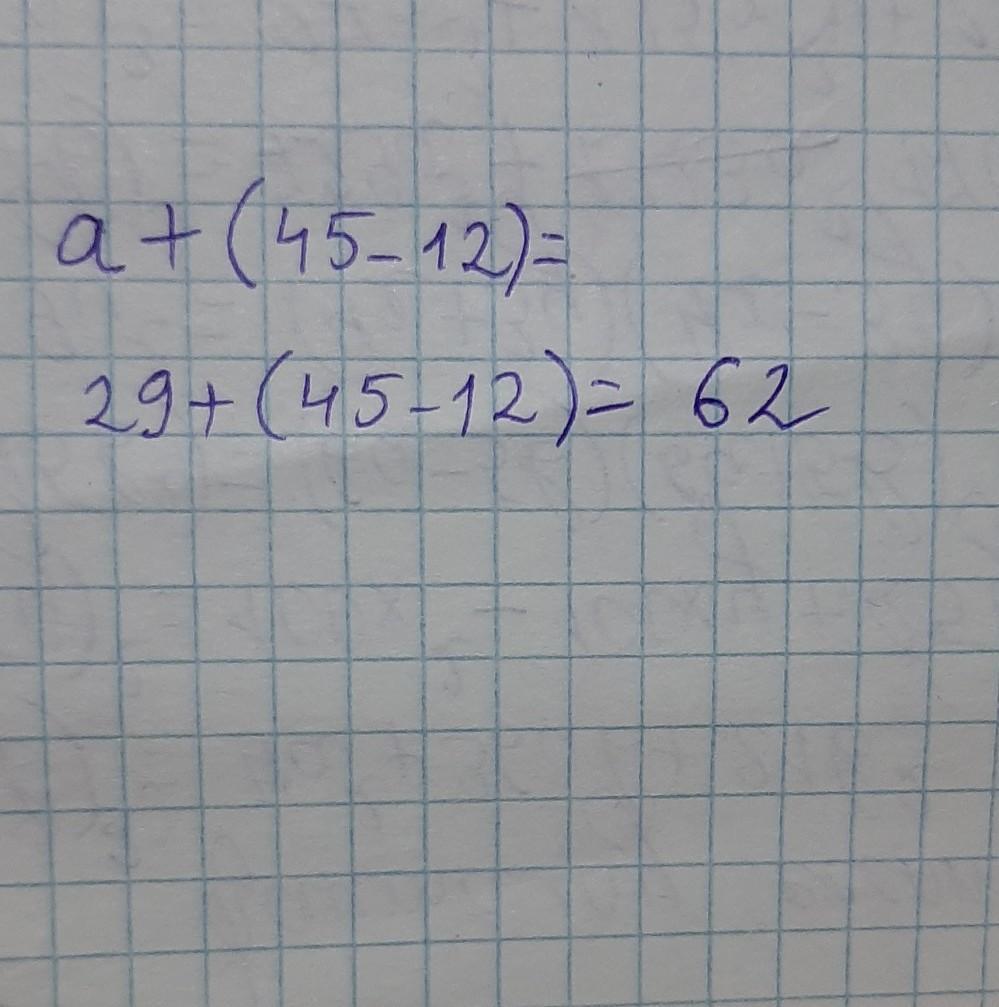 a + (45 - 12) =
29 + (45 - 12) = 62